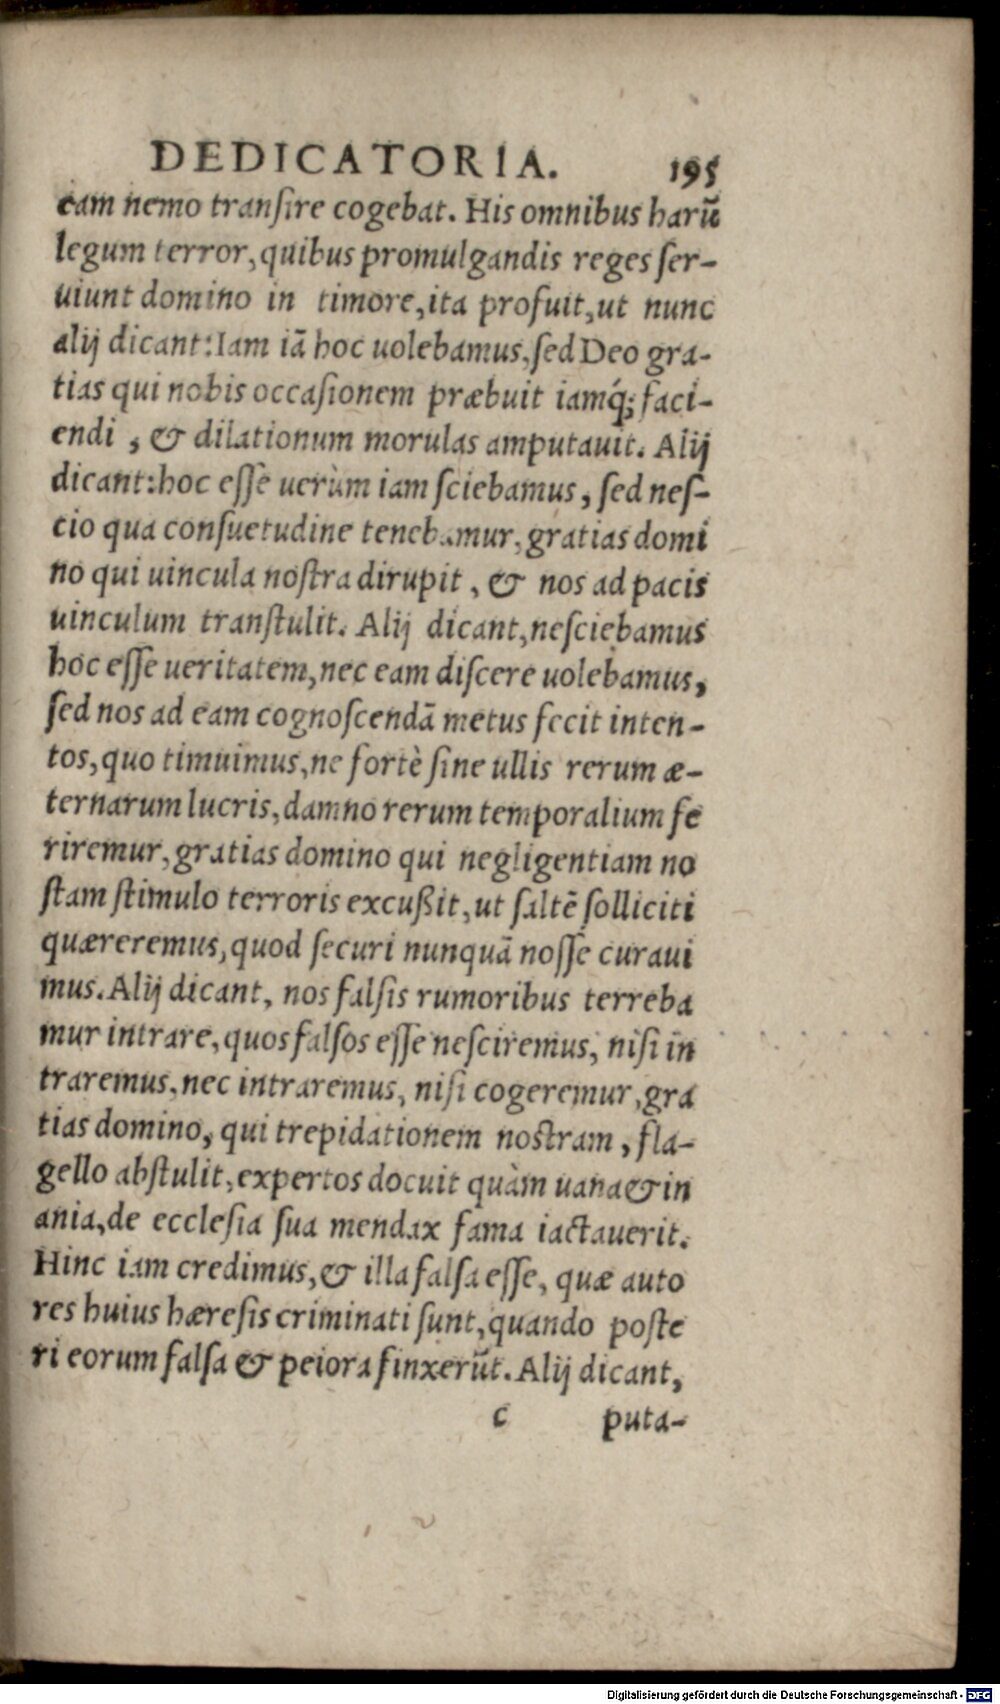 DEDICATORIA. 195
eam nemo transire cogebat. His omnibus harū
legum terror, quibus promulgandis reges ser-
uiunt domino in timore, ita profuit, ut nunc
alij dicant: Iam iā hoc uolebamus, sed Deo gra-
tias qui nobis occasionem præbuit iamq́; faci-
endi, & dilationum morulas amputauit. Alij
dicant: hoc esse uerùm iam sciebamus, sed nes-
cio qua consuetudine tenebamur, gratias domi
no qui uincula nostra dirupit, & nos ad pacis
uinculum transtulit. Alij dicant, nesciebamus
hoc esse ueritatem, nec eam discere uolebamus,
sed nos ad eam cognoscendā metus fecit inten-
tos, quo timuimus, ne fortè sine ullis rerum æ-
ternarum lucris, damno rerum temporalium fe
riremur, gratias domino qui negligentiam no
stam stimulo terroris excußit, ut saltē solliciti
quæreremus, quod securi nunquā nosse curaui
mus. Alij dicant, nos falsis rumoribus terreba
mur intrare, quos falsos esse nesciremus, nisi in
traremus, nec intraremus, nisi cogeremur, gra
tias domino, qui trepidationem nostram, fla-
gello abstulit, expertos docuit quàm uana & in
ania, de ecclesia sua mendax fama iactauerit.
Hinc iam credimus, & illa falsa esse, quæ auto
res huius hæresis criminati sunt, quando poste
ri eorum falsa & peiora finxerūt. Alij dicant,
c puta-
Digitalisierung gefördert durch die Deutsche Forschungsgemeinschaft - DFG